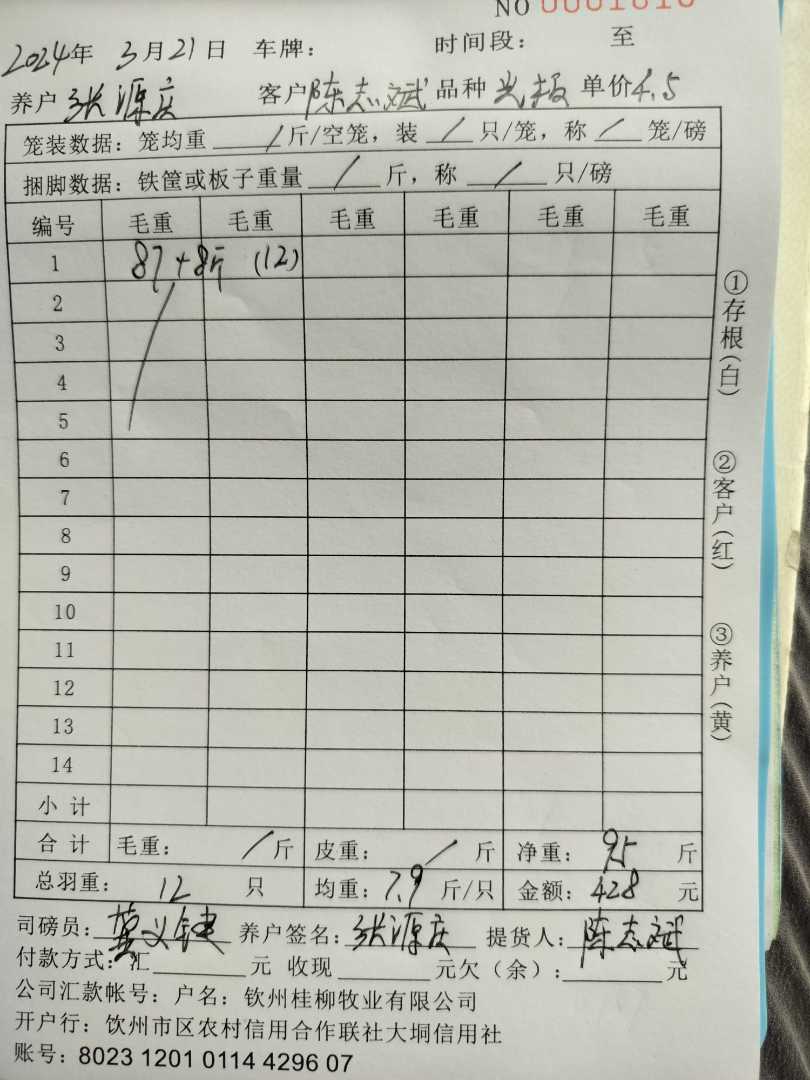 NO 0001810
2024年 3月21日 车牌: 时间段: 至
养户 张源庆 客户 陈志斌 品种 光板 单价 4.5
笼装数据: 笼均重 / 斤/空笼, 装 / 只/笼, 称 / 笼/磅
捆脚数据: 铁筐或板子重量 / 斤, 称 / 只/磅
编号 毛重 毛重 毛重 毛重 毛重 毛重
1 87+8斤 (12)
2
3
4
5
6
7
8
9
10
11
12
13
14
小 计
合 计 毛重: / 斤 皮重: / 斤 净重: 95 斤
总羽重: 12 只 均重: 7.9 斤/只 金额: 428 元
司磅员: 莫义健 养户签名: 张源庆 提货人: 陈志斌
付款方式: 汇 元 收现 元欠(余): 元
公司汇款帐号: 户名: 钦州桂柳牧业有限公司
开户行: 饮州市区农村信用合作联社大垌信用社
账号: 8023 1201 0114 4296 07
①存根(白)
②客户(红)
③养户(黄)